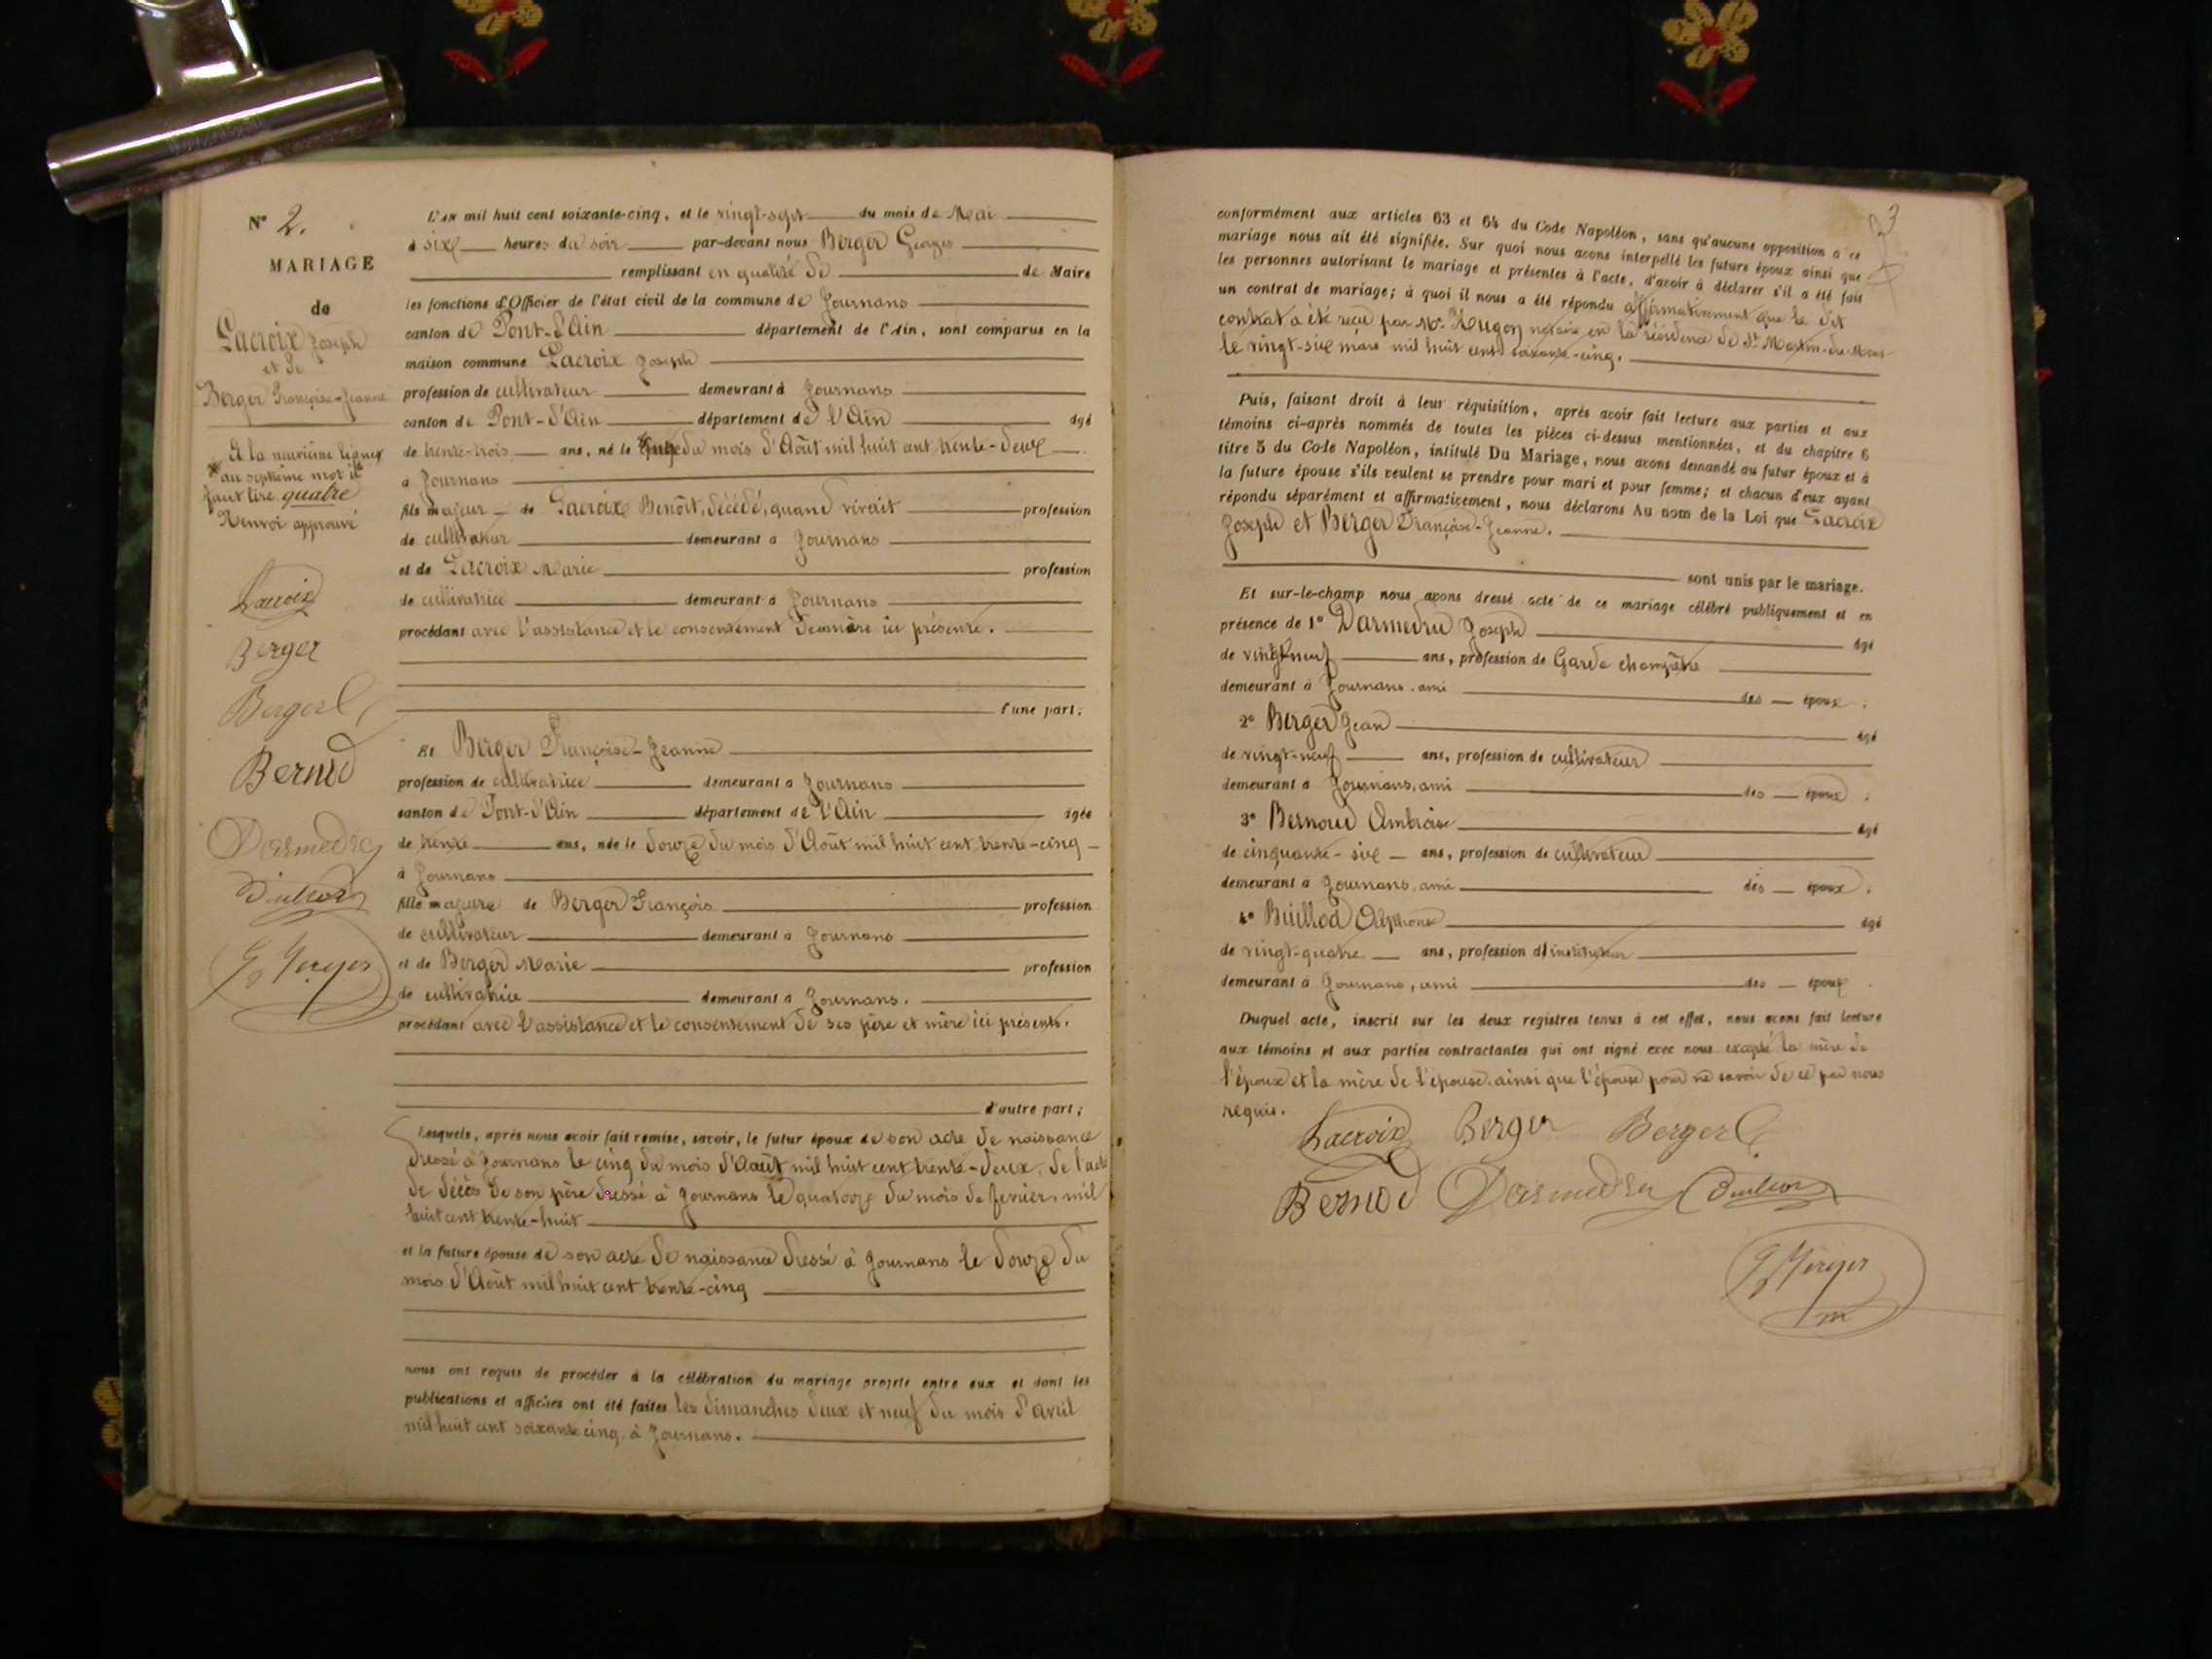 N° 2.
MARIAGE
de
Lacroix Joseph
et de
Berger Françoise-Jeanne
A la neuvième ligne
au septième mot il
faut lire quatre
Renvoi approuvé
Lacroix
Berger
Berger
Bernod
Darmedru
G Berger
L'AN mil huit cent soixante-cinq, et le vingt-sept du mois de Mai
à six heures du soir par-devant nous Berger Georges
remplissant en qualité de de Maire
les fonctions d'Officier de l'état civil de la commune de Journans
canton de Pont-d'Ain département de l'Ain, sont comparus en la
maison commune Lacroix Joseph
profession de cultivateur demeurant à Journans
canton de Pont-d'Ain département de l'Ain âgé
de trente-trois ans, né le du mois d'Août mil huit cent trente-deux
à Journans
fils majeur de Lacroix Benoît, décédé, quand vivait profession
de cultivateur demeurant à Journans
et de Lacroix Marie profession
de cultivatrice demeurant à Journans
procédant avec l'assistance et le consentement de sa mère ici présente.
d'une part;
Et Berger Françoise-Jeanne
profession de cultivatrice demeurant à Journans
canton de Pont-d'Ain département de l'Ain âgée
de trente ans, née le douze du mois d'Août mil huit cent trente-cinq
à Journans
fille majeure de Berger François profession
de cultivateur demeurant à Journans
et de Berger Marie profession
de cultivatrice demeurant à Journans.
procédant avec l'assistance et le consentement de ses père et mère ici présents.
d'autre part;
Lesquels, après nous avoir fait remise, savoir, le futur époux de son acte de naissance
dressé à Journans le cinq du mois d'Août mil huit cent trente-deux, de l'acte
de décès de son père dressé à Journans le quatorze du mois de fevrier mil
huit cent trente-huit
et la future épouse de son acte de naissance dressé à Journans le douze du
mois d'Août mil huit cent trente-cinq
nous ont requis de procéder à la célébration du mariage projeté entre eux et dont les
publications et affiches ont été faites les dimanches deux et neuf du mois d'avril
mil huit cent soixante cinq à Journans.
3
conformément aux articles 63 et 64 du Code Napoléon, sans qu'aucune opposition à ce
mariage nous ait été signifiée. Sur quoi nous avons interpellé les futurs époux ainsi que
les personnes autorisant le mariage et présentes à l'acte, d'avoir à déclarer s'il a été fait
un contrat de mariage; à quoi il nous a été répondu affirmativement que le dit
contrat a été reçu par Me Hugon notaire en la résidence de St Martin-du-Mont
le vingt-six mars mil huit cent soixante-cinq.
Puis, faisant droit à leur réquisition, après avoir fait lecture aux parties et aux
témoins ci-après nommés de toutes les pièces ci-dessus mentionnées, et du chapitre 6
titre 5 du Code Napoléon, intitulé Du Mariage, nous avons demandé au futur époux et à
la future épouse s'ils veulent se prendre pour mari et pour femme; et chacun d'eux ayant
répondu séparément et affirmativement, nous déclarons Au nom de la Loi que Lacroix
Joseph et Berger Françoise-Jeanne.
sont unis par le mariage.
Et sur-le-champ nous avons dressé acte de ce mariage célébré publiquement et en
présence de 1° Darmedru Joseph âgé
de vingt-neuf ans, profession de Garde champêtre
demeurant à Journans, ami des époux.
2° Berger Jean âgé
de vingt-neuf ans, profession de cultivateur
demeurant à Journans, ami des époux;
3° Bernoud Ambroise âgé
de cinquante-six ans, profession de cultivateur
demeurant à Journans, ami des époux;
4° Buillod Alphonse âgé
de vingt-quatre ans, profession d'instituteur
demeurant à Journans, ami des époux
Duquel acte, inscrit sur les deux registres tenus à cet effet, nous avons fait lecture
aux témoins et aux parties contractantes qui ont signé avec nous excepté la mère de
l'époux et la mère de l'épouse, ainsi que l'épouse pour ne savoir de ce par nous
requis.
Lacroix Berger Berger
Bernod Darmedru
G Berger
m